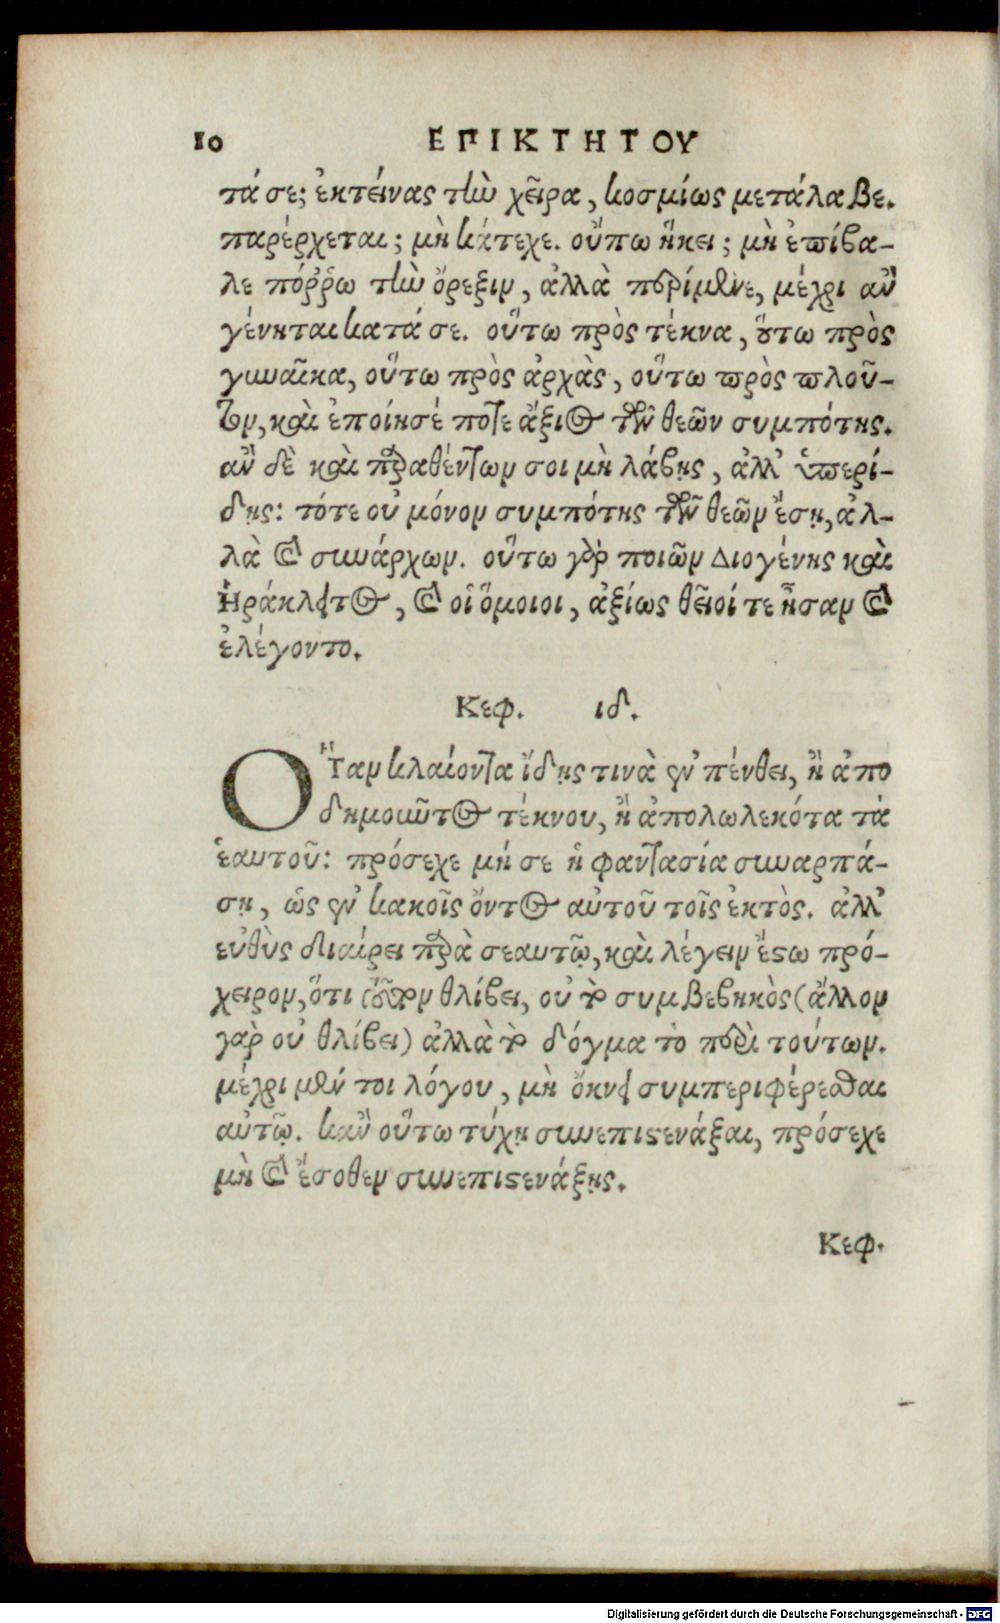 10 ΕΠΙΚΤΗΤΟΥ
τά σε; ἐκτείνας τὴν χεῖρα, κοσμίως μετάλαβε.
παρέρχεται; μὴ κάτεχε. οὔπω ἥκει; μὴ ἐπίβα-
λε πόῤῥω τὴν ὄρεξιν, ἀλλὰ περίμενε, μέχρι ἂν
γένηται κατά σε. οὕτω πρὸς τέκνα, οὕτω πρὸς
γυναῖκα, οὕτω πρὸς ἀρχὰς, οὕτω πρὸς πλοῦ-
τον, καὶ ἐποίησέ ποτε ἄξιος τῶν θεῶν συμπότης.
ἂν δὲ καὶ παραθέντων σοι μὴ λάβῃς, ἀλλ' ὑπερί-
δῃς: τότε οὐ μόνον συμπότης τῶν θεῶν ἔσῃ, ἀλ-
λὰ καὶ συνάρχων. οὕτω γὰρ ποιῶν Διογένης καὶ
Ἡράκλειτος, καὶ οἱ ὅμοιοι, ἀξίως θεῖοί τε ἦσαν καὶ
ἐλέγοντο.
Κεφ. ιδ.
Ὅταν κλαίοντα ἴδῃς τινὰ ἐν πένθει, ἢ ἀπο
δημοῦντος τέκνου, ἢ ἀπολωλεκότα τὰ
ἑαυτοῦ: πρόσεχε μή σε ἡ φαντασία συναρπά-
σῃ, ὡς ἐν κακοῖς ὄντος αὐτοῦ τοῖς ἐκτὸς. ἀλλ'
εὐθὺς διαίρει παρὰ σεαυτῷ, καὶ λέγειν ἔστω πρό-
χειρον, ὅτι τοῦτον θλίβει, οὐ τὸ συμβεβηκὸς (ἄλλον
γὰρ οὐ θλίβει) ἀλλὰ τὸ δόγμα τὸ περὶ τούτων.
μέχρι μέν τοι λόγου, μὴ ὄκνει συμπεριφέρεσθαι
αὐτῷ. κἂν οὕτω τύχῃ συνεπιστενάξαι, πρόσεχε
μὴ καὶ ἔσοθεν συνεπιστενάξῃς.
Κεφ.
Digitalisierung gefördert durch die Deutsche Forschungsgemeinschaft - DFG